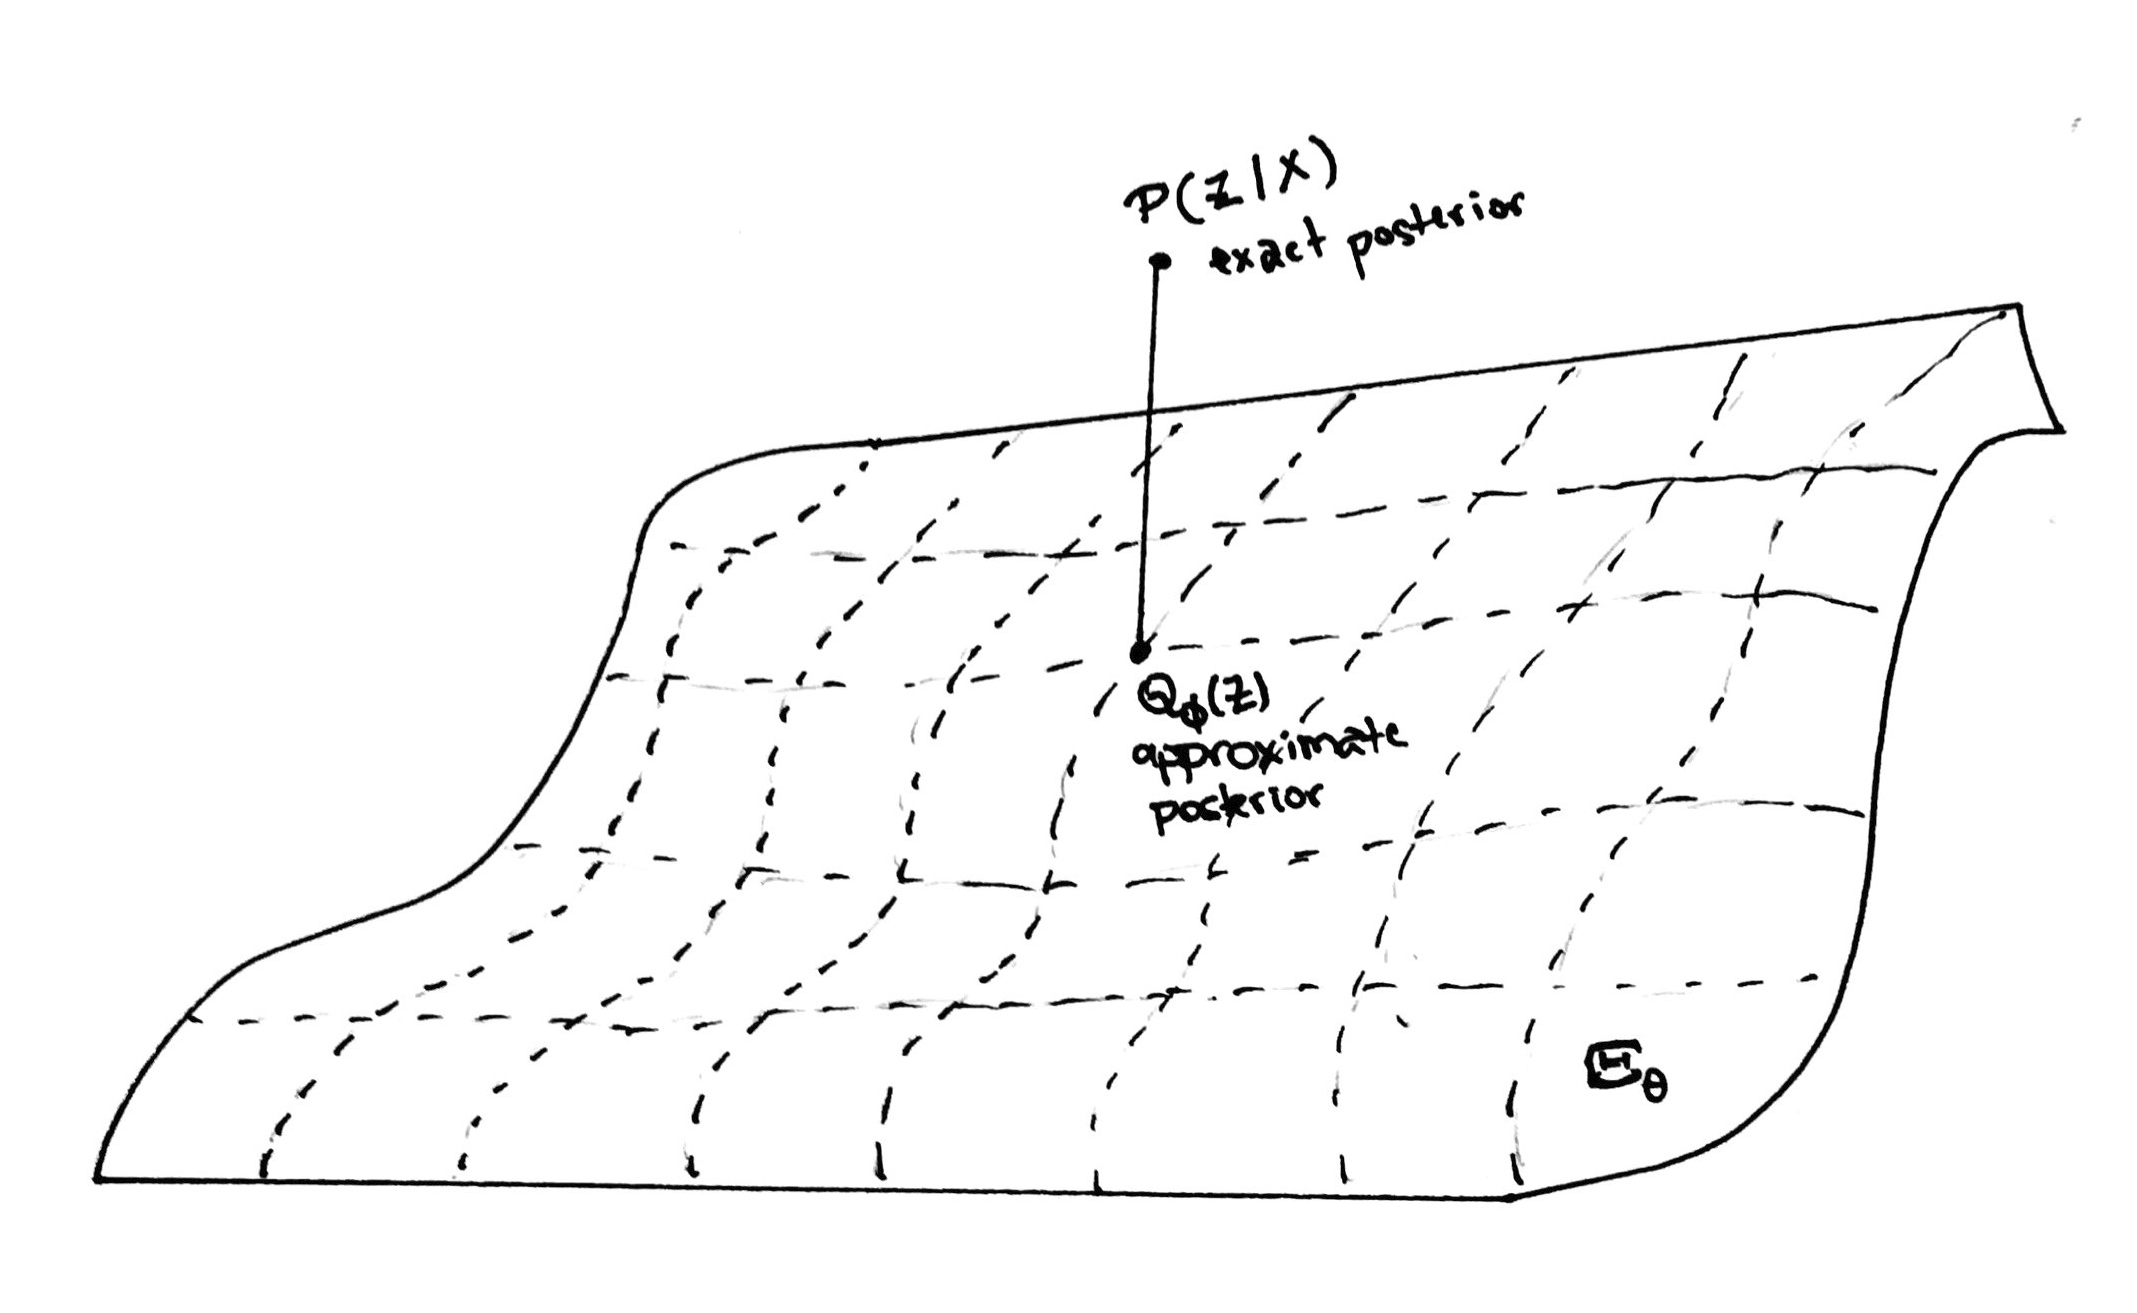 P(Z|X)
exact posterior
Qϕ(Z)
approximate
posterior
Θθ